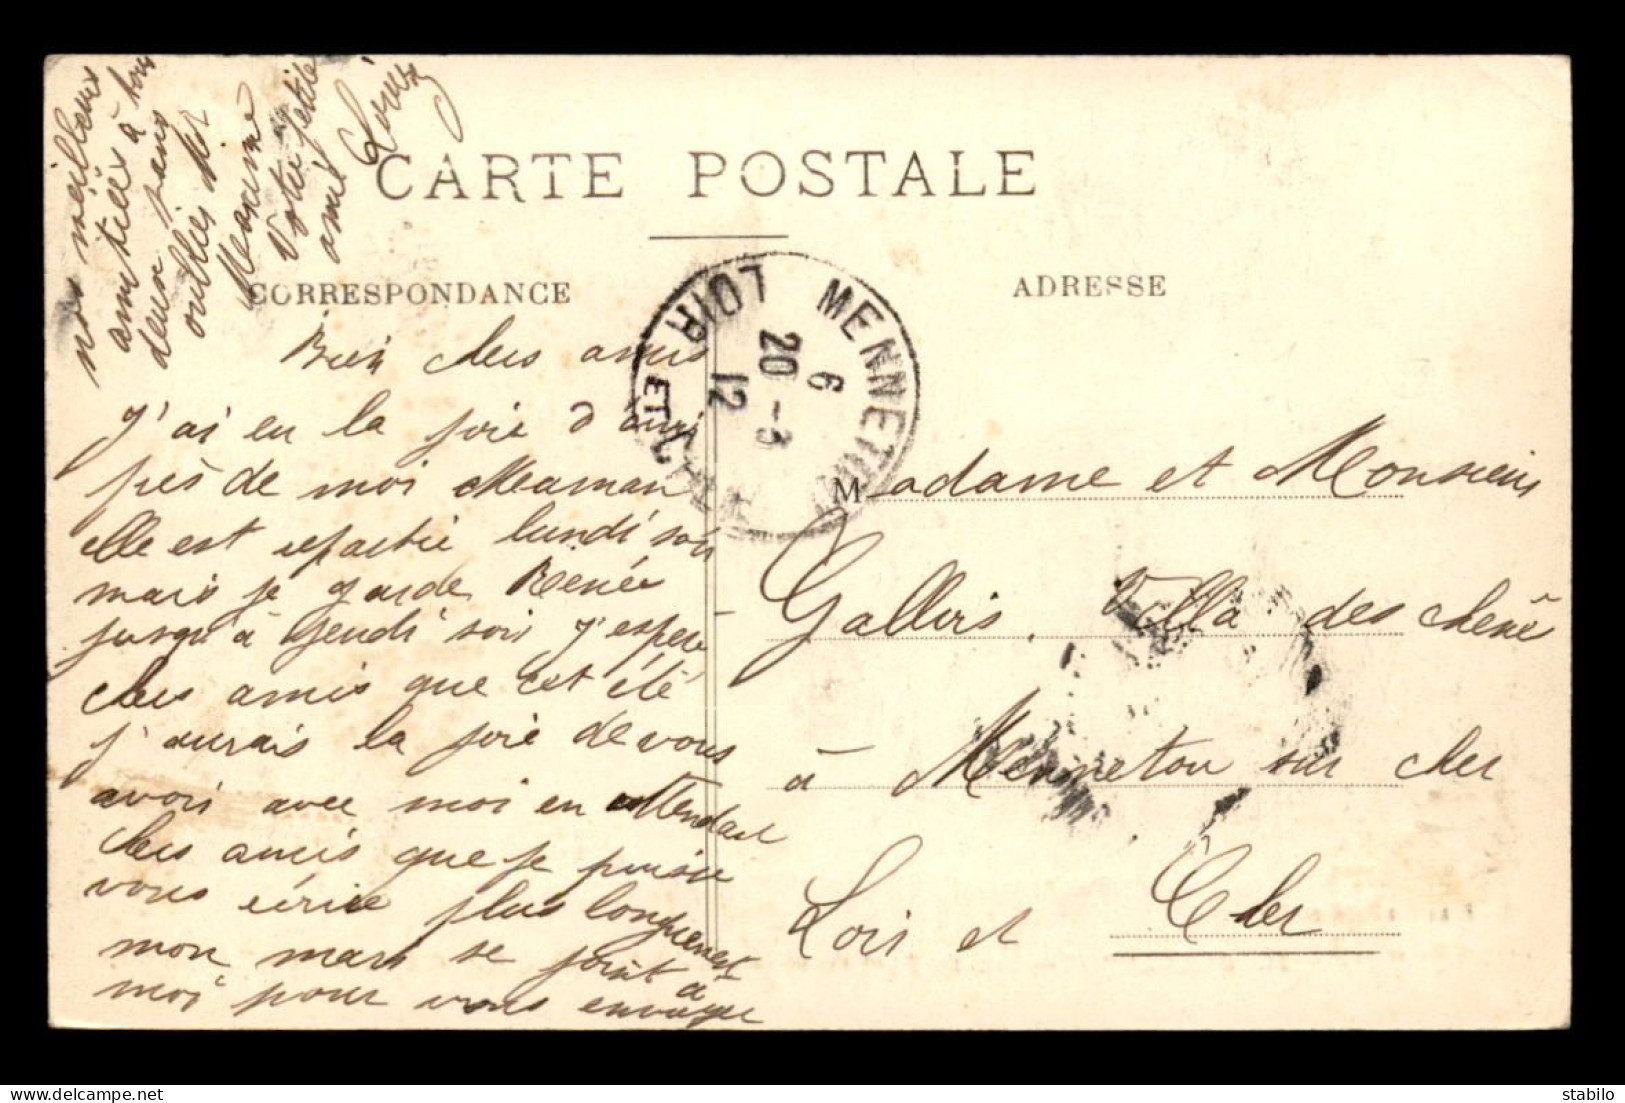 CARTE POSTALE
CORRESPONDANCE
ADRESSE
MENNETOU
LOIR ET CHER
6
20 -3
12
Bien chers amis
J'ai eu la joie d'avoir
près de moi Maman
elle est repartie lundi soir
mais je garde Renée
jusqu'à jeudi soir J'espère
chers amis que cet été
j'aurais la joie de vous
avoir avec moi en attendant
chers amis que je puisse
vous écrire plus longuement
mon mari se joint à
moi pour vous envoyer
nos meilleurs
amitiés à tous
deux sans
oublier Mr
Maxime
Votre petite
amie
Madame et Monsieur
Gallois. Villa des chêne
à Mennetou sur cher
Loir et Cher
delcampe.net
stabilo